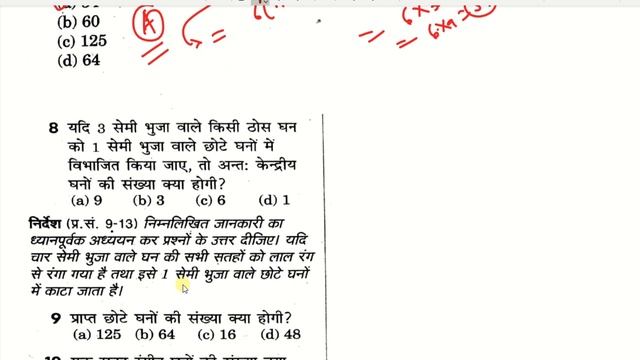 (b) 60
(c) 125
(d) 64
A
=
=
=
8 यदि 3 सेमी भुजा वाले किसी ठोस घन
को 1 सेमी भुजा वाले छोटे घनों में
विभाजित किया जाए, तो अन्त: केन्द्रीय
घनों की संख्या क्या होगी?
(a) 9 (b) 3 (c) 6 (d) 1
निर्देश (प्र.सं. 9-13) निम्नलिखित जानकारी का
ध्यानपूर्वक अध्ययन कर प्रश्नों के उत्तर दीजिए। यदि
चार सेमी भुजा वाले घन की सभी सतहों को लाल रंग
से रंगा गया है तथा इसे 1 सेमी भुजा वाले छोटे घनों
में काटा जाता है।
9 प्राप्त छोटे घनों की संख्या क्या होगी?
(a) 125 (b) 64 (c) 16 (d) 48